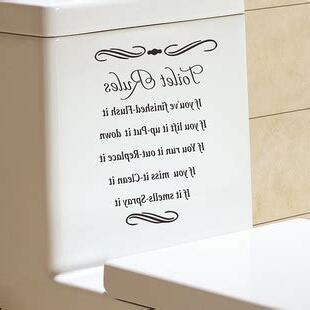 Toilet Rules
If you've finished-Flush it
If you lift it up-Put it down
If You run it out-Replace it
If you miss it-Clean it
If it smells-Spray it